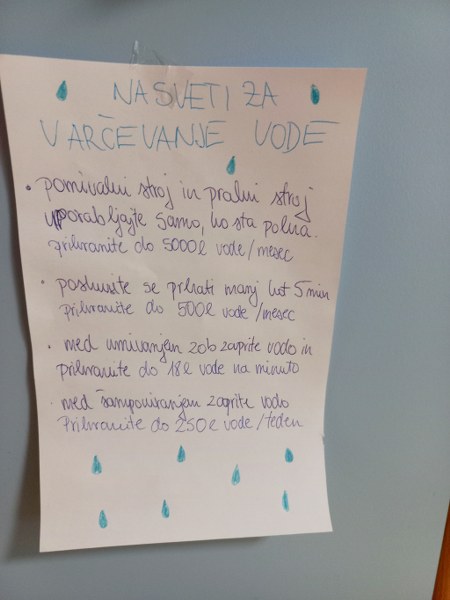 NASVETI ZA
VARČEVANJE VODE
• pomivalni stroj in pralni stroj
uporabljajte samo, ko sta polna.
Prihranite do 5000l vode/mesec
• poskusite se prhati manj kot 5 min
Prihranite do 500l vode/mesec
• med umivanjem zob zaprite vodo in
prihranite do 18l vode na minuto
• med šamponiranjem zaprite vodo
Prihranite do 250l vode/teden